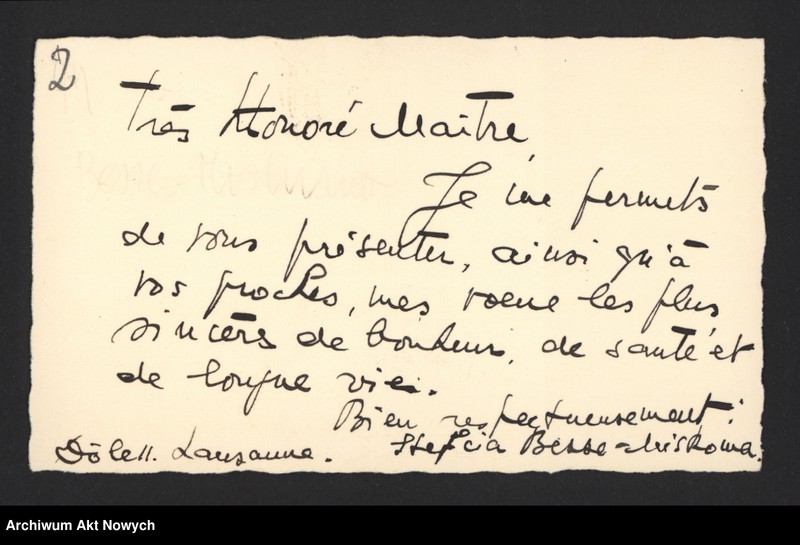 2
Très Honoré Maître,
Je me permets
de vous présenter, ainsi qu'à
vos proches, mes voeux les plus
sincères de bonheur, de santé et
de longue vie.
Bien respectueusement:
Stefcia Besse
Dôle 11. Lausanne.
Archiwum Akt Nowych